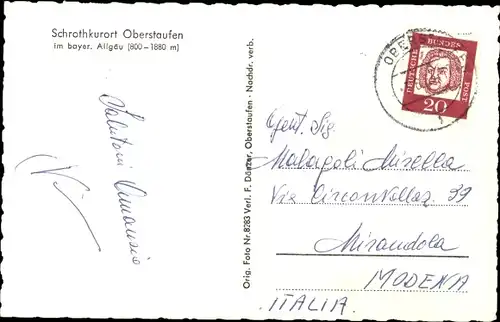 Schrothkurort Oberstaufen
im bayer. Allgäu (800–1880 m)
Salutoni
Orig. Foto Nr. 8283 Verl. F. Dünzer, Oberstaufen · Nachdr. verb.
OBER
DEUTSCHE BUNDES POST
20
Gent. Sig.
Malagoli Mirella
Via Circonvallaz. 39
Mirandola
MODENA
ITALIA.